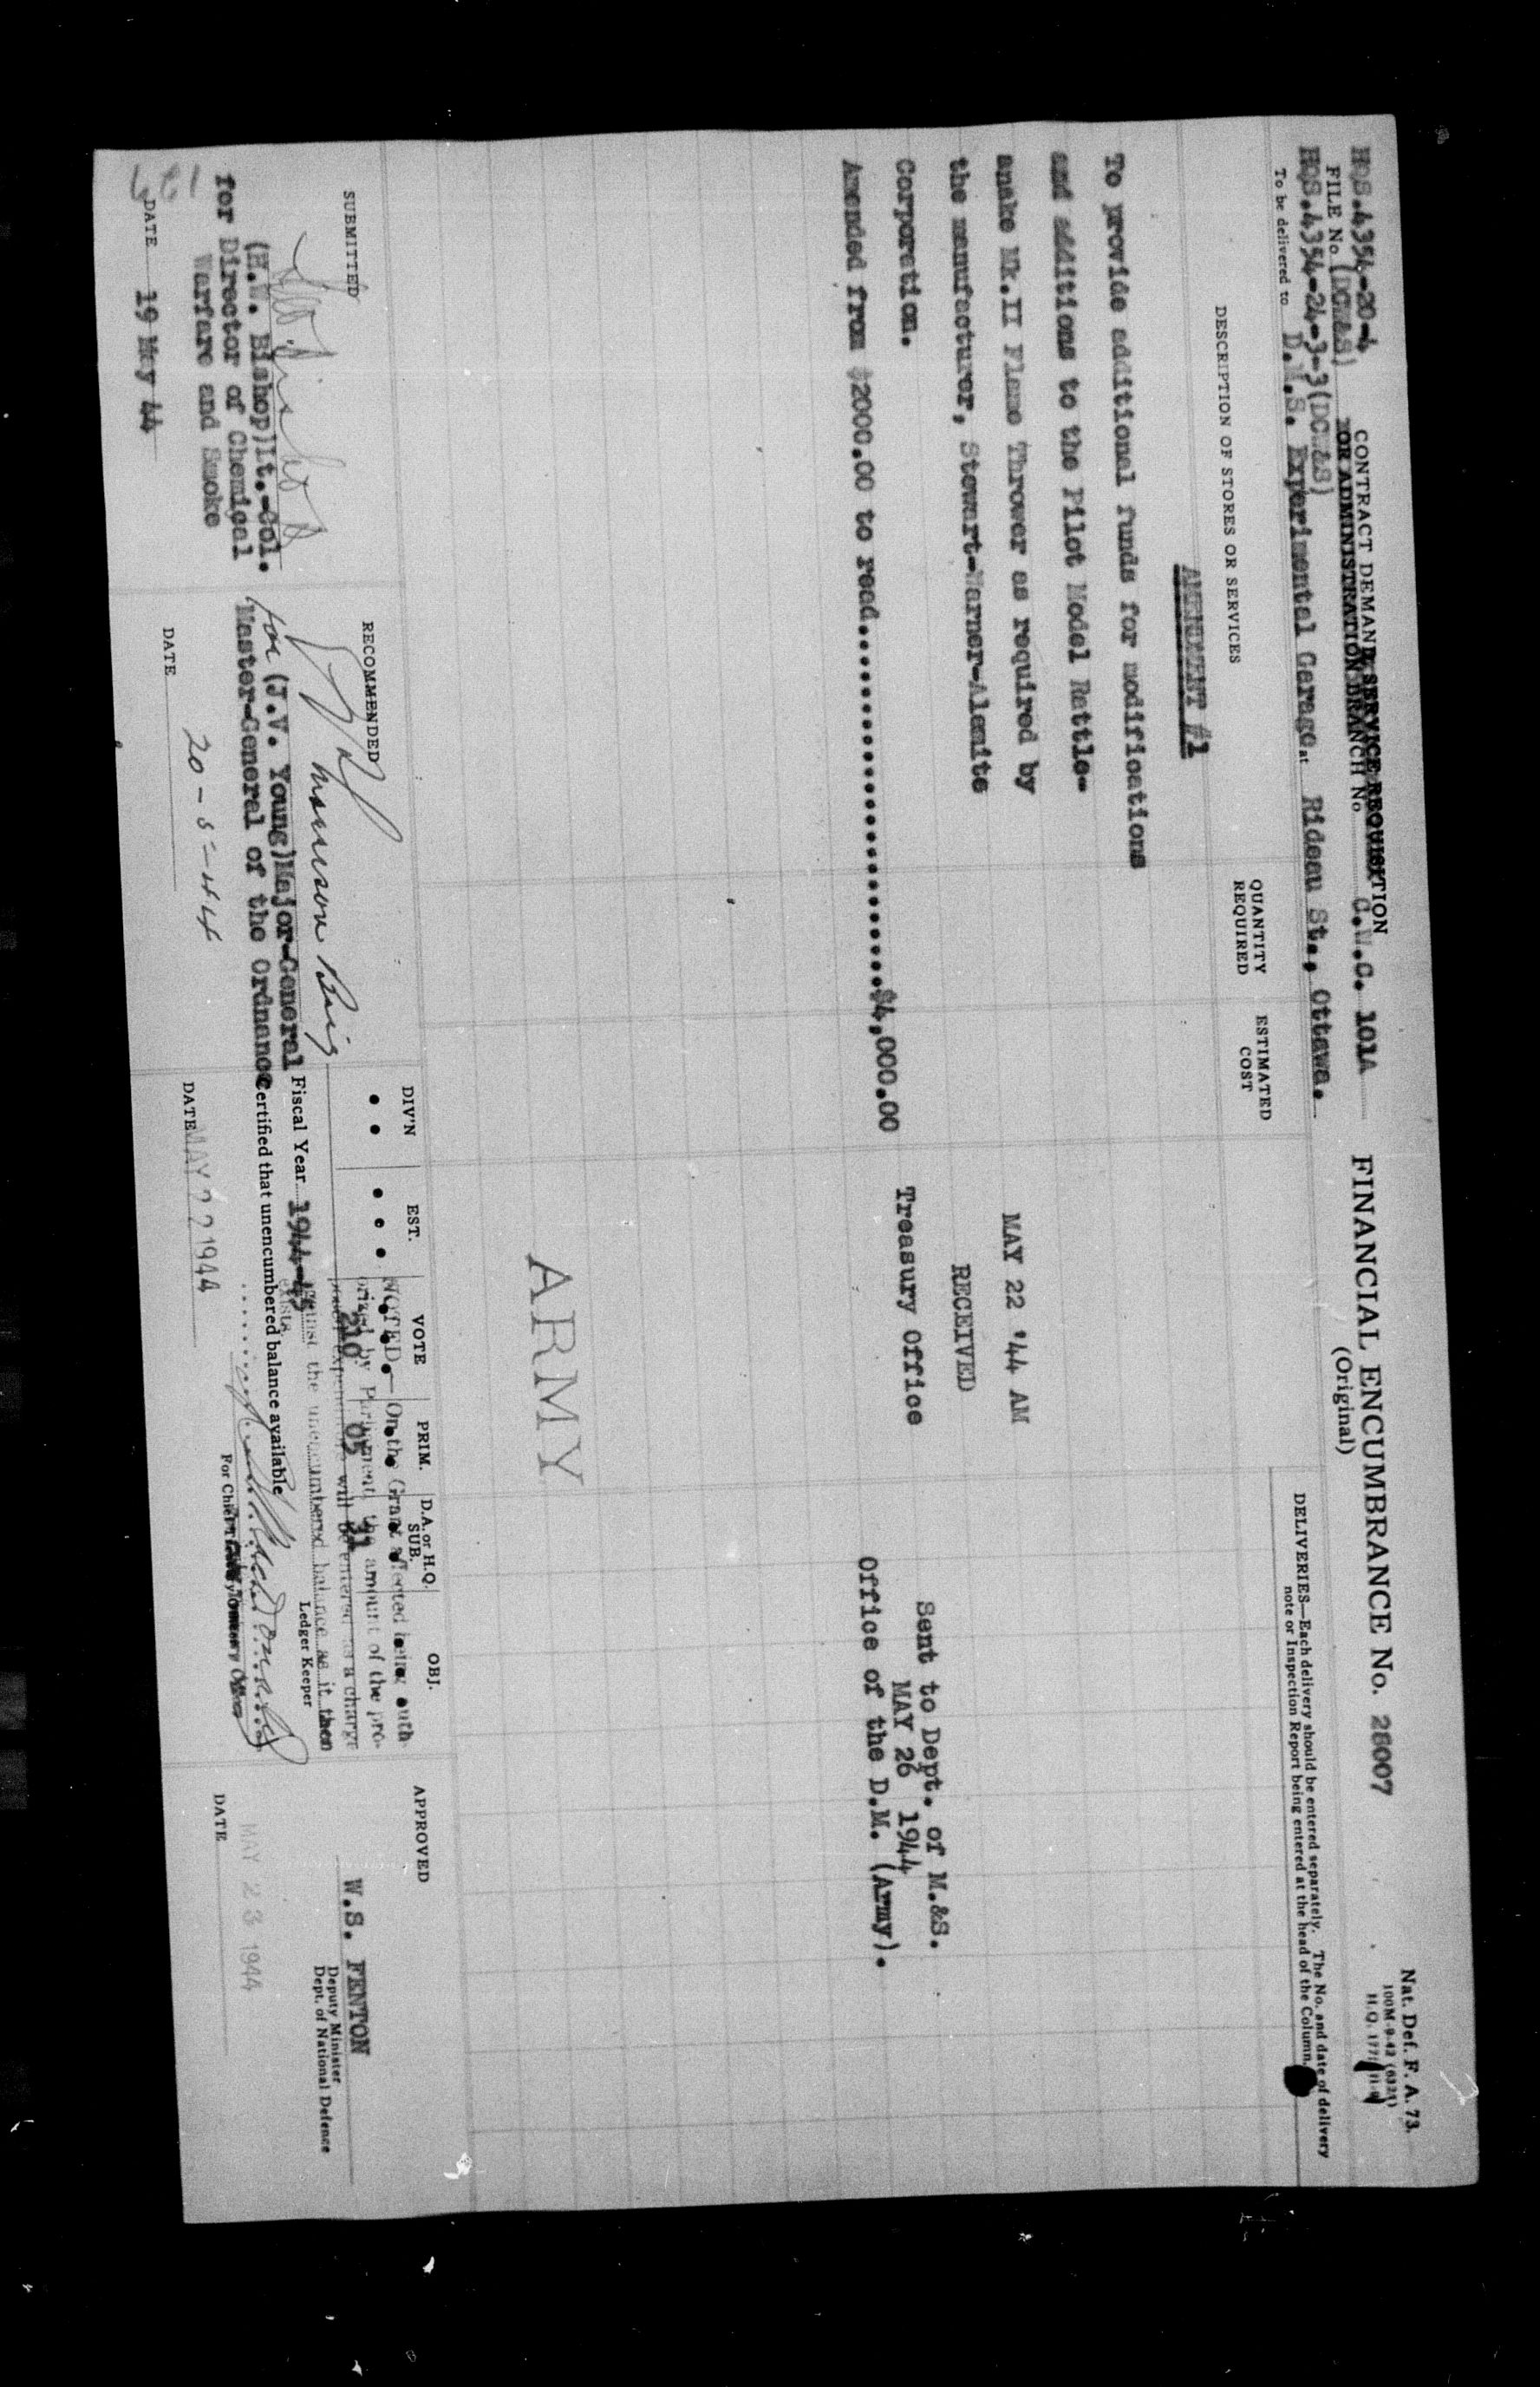 HQS.4354-20-4
FILE No (DCW&S)
HQS.4354-24-3-3(DCW&S)
CONTRACT DEMAND SERVICE REQUISITION
FOR ADMINISTRATION BRANCH No C.W.C. 101A
To be delivered to D.M.S. Experimental Garage at Rideau St., Ottawa.
FINANCIAL ENCUMBRANCE No. 28007
(Original)
Nat. Def. F. A. 73.
100M-9-42 (6321)
H.Q. 1771
DELIVERIES—Each delivery should be entered separately. The No. and date of delivery
note or Inspection Report being entered at the head of the Column.
DESCRIPTION OF STORES OR SERVICES
QUANTITY
REQUIRED
ESTIMATED
COST
AMENDMENT #1
To provide additional funds for modifications
and additions to the Pilot Model Rattle-
snake Mk.II Flame Thrower as required by
the manufacturer, Stewart-Warner-Alemite
Corporation.
Amended from $2000.00 to read..............................$4,000.00
MAY 22 '44 AM
RECEIVED
Treasury Office
Sent to Dept. of M.&S.
MAY 26 1944
Office of the D.M. (Army).
ARMY
SUBMITTED
(H.W. Bishop)Lt.-Col.
for Director of Chemical
Warfare and Smoke
DATE 19 May 44
RECOMMENDED
for (J.V. Young)Major-General
Master-General of the Ordnance
DATE 20-5-44
DIV'N
EST.
VOTE
PRIM.
D.A. or H.Q.
SUB.
OBJ.
210 05 31
NOTED—On the Grant affected being auth-
orized by Parliament, the amount of the pro-
posed expenditure will be entered as a charge
against the unencumbered balance as it then
exists.
Fiscal Year 1944-45
Ledger Keeper
Certified that unencumbered balance available
For Chief Treasury Officer
DATE MAY 22 1944
APPROVED
W.S. FENTON
Deputy Minister
Dept. of National Defence
DATE MAY 23 1944